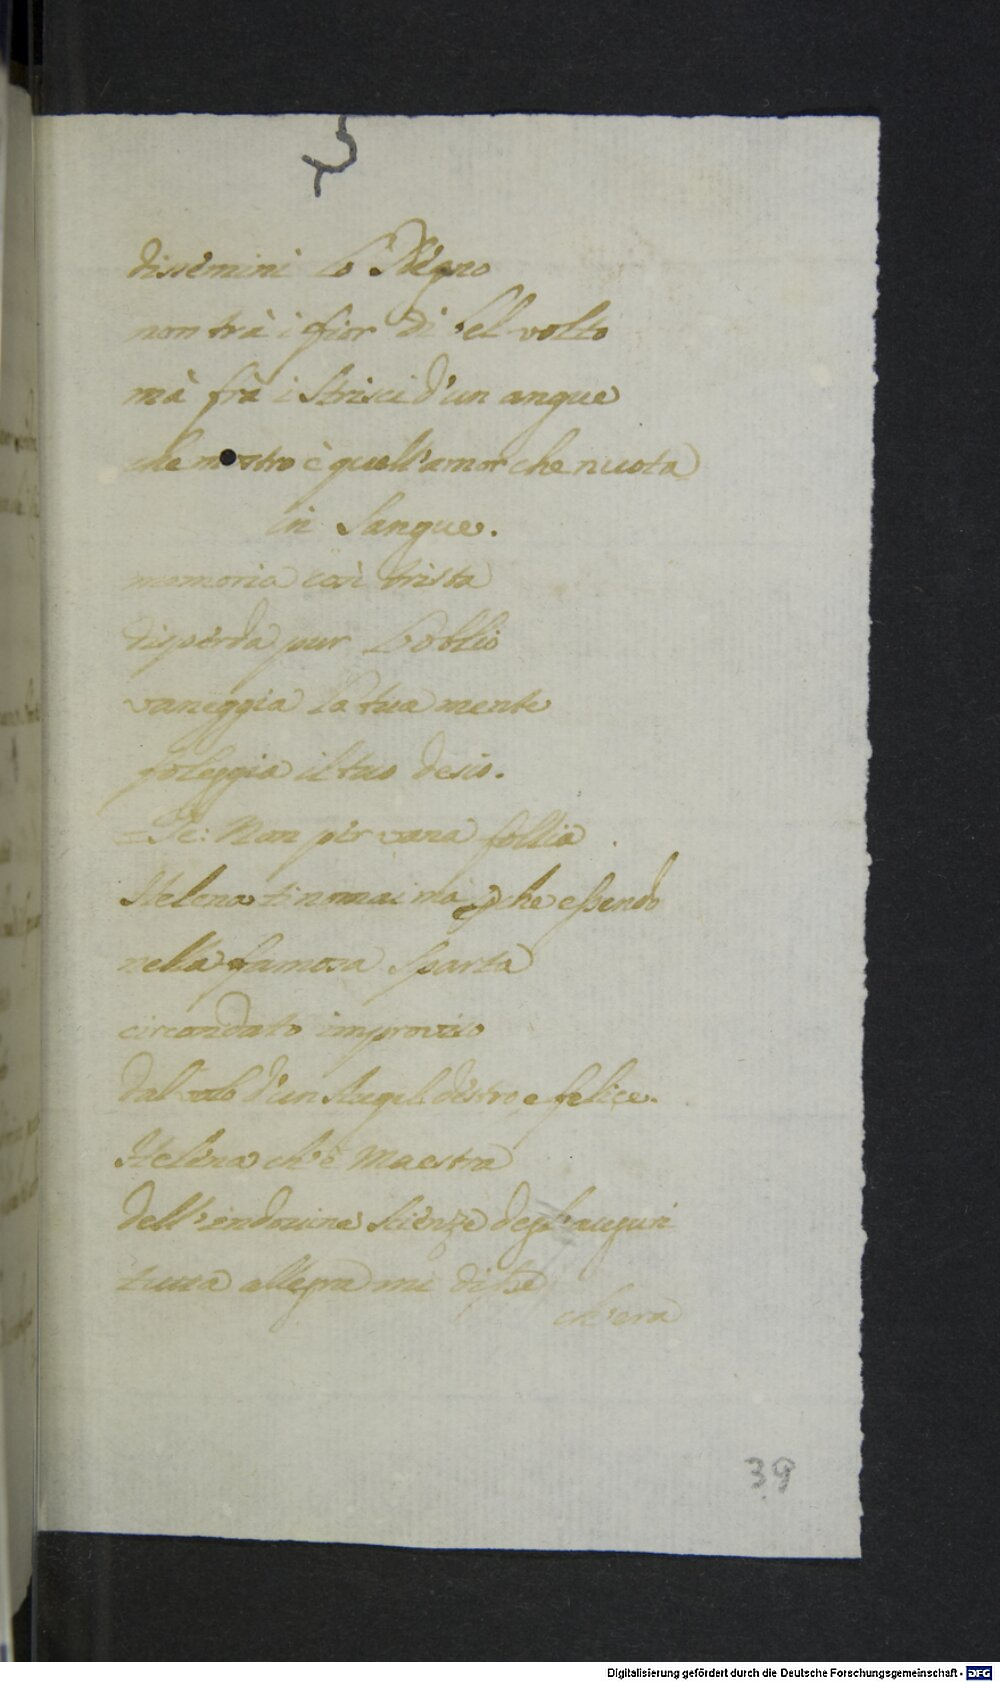 dissemini lo sdegno
non trà i fior di bel volto
mà frà i strisci d'un angue
che mostro è quell'amor che nuota
in sangue.
memoria così trista
disperda pur l'oblio
vaneggia la tua mente
foleggia il tuo desio.
Te: Non per vana follia
Helena ti nomai mà che essendo
nella famosa Sparta
circondato improviso
dal volo d'un Augel destro e felice.
Helena ch'è Maestra
dell'indovine scienze degl'auguri
tutta allegra mi disse
ch'era
39
Digitalisierung gefördert durch die Deutsche Forschungsgemeinschaft - DFG